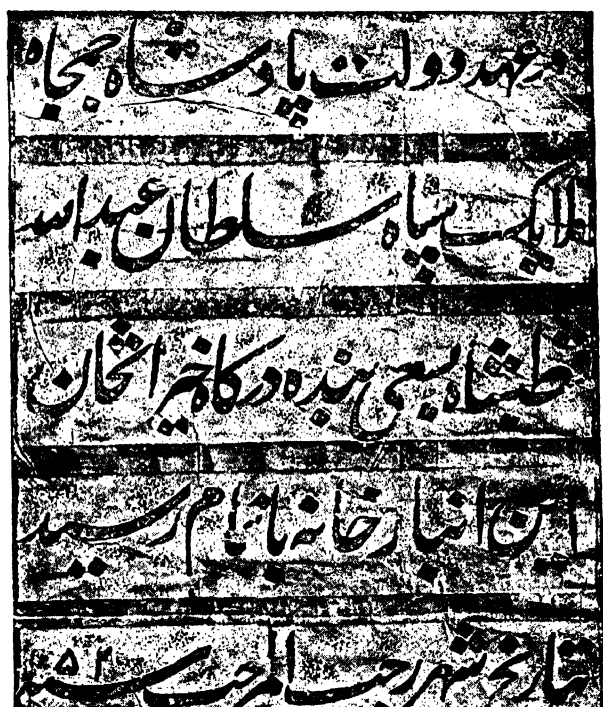 در عهد دولت پادشاه جمجاه
ملایک سپاه سلطان عبدالله
قطبشاه بسعی بنده درگاه خیرات خان
این انبار خانه باتمام رسید
بتاریخ شهر رجب المرجب سنه ۱۰۵۲